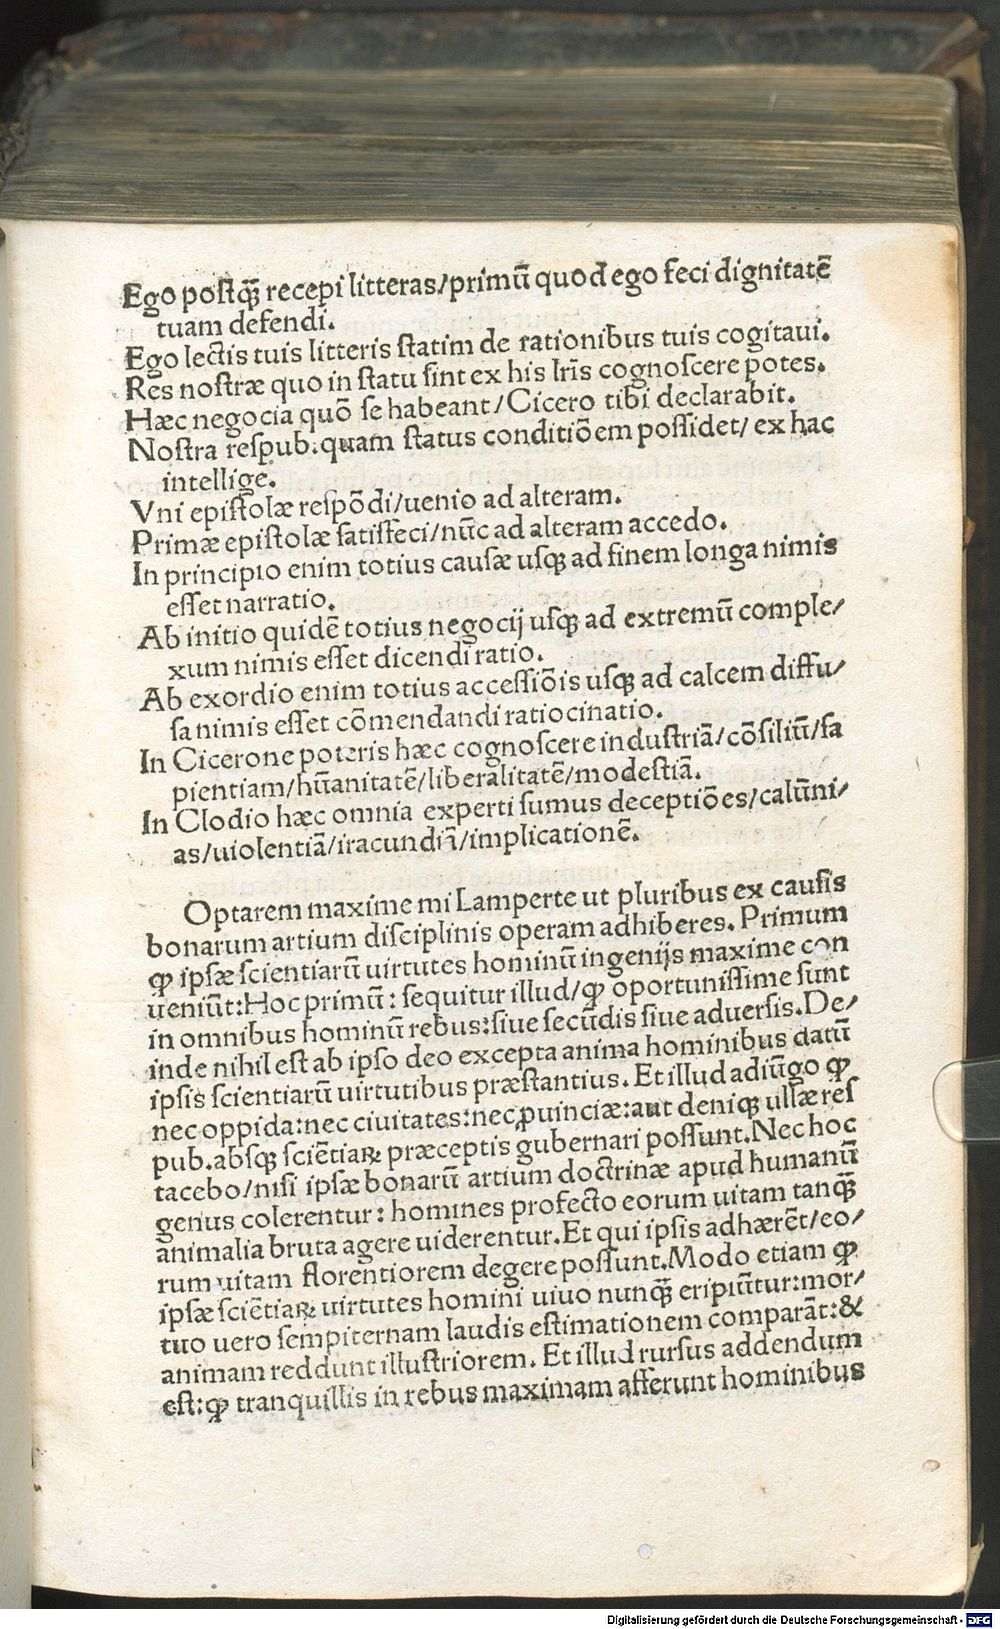 Ego postq̄ȝ recepi litteras/primū quod ego feci dignitatē
tuam defendi.
Ego lectis tuis litteris ſtatim de rationibus tuis cogitaui.
Res noſtræ quo in ſtatu ſint ex his lr̄is cognoſcere potes.
Hæc negocia quō ſe habeant/Cicero tibi declarabit.
Noſtra reſpub. quam ſtatus conditiōem poſſidet/ ex hac
intellige.
Vni epiſtolæ reſpōdi/uenio ad alteram.
Primæ epiſtolæ ſatiſfeci/nūc ad alteram accedo.
In principio enim totius cauſæ uſqȝ ad finem longa nimis
eſſet narratio.
Ab initio quidē totius negocij uſqȝ ad extremū comple/
xum nimis eſſet dicendi ratio.
Ab exordio enim totius acceſſiōis uſqȝ ad calcem diffu/
ſa nimis eſſet cōmendandi ratiocinatio.
In Cicerone poteris hæc cognoſcere induſtriā/cōſiliū/ſa
pientiam/hūanitatē/liberalitatē/modeſtiā.
In Clodio hæc omnia experti ſumus deceptiōes/calūni/
as/uiolentiā/iracundiā/implicationē.
Optarem maxime mi Lamperte ut pluribus ex cauſis
bonarum artium diſciplinis operam adhiberes. Primum
ꝙ ipſæ ſcientiarū uirtutes hominū ingenijs maxime con
ueniūt: Hoc primū: ſequitur illud/ꝙ oportuniſſime ſunt
in omnibus hominū rebus: ſiue ſecūdis ſiue aduerſis. De/
inde nihil eſt ab ipſo deo excepta anima hominibus datū
ipſis ſcientiarū uirtutibus præſtantius. Et illud adiūgo ꝙ
nec oppida: nec ciuitates: nec ꝓuinciæ: aut deniqȝ ullæ reſ
pub. abſqȝ ſciētiaꝝ præceptis gubernari poſſunt. Nec hoc
tacebo/niſi ipſæ bonarū artium doctrinæ apud humanū
genus colerentur: homines profecto eorum uitam tanq̄ȝ
animalia bruta agere uiderentur. Et qui ipſis adhærēt/eo/
rum uitam florentiorem degere poſſunt. Modo etiam ꝙ
ipſæ ſciētiaꝝ uirtutes homini uiuo nunq̄ȝ eripiūtur: mor/
tuo uero ſempiternam laudis eſtimationem comparāt: &
animam reddunt illuſtriorem. Et illud rurſus addendum
eſt: ꝙ tranquillis in rebus maximam afferunt hominibus
Digitalisierung gefördert durch die Deutsche Forschungsgemeinschaft - DFG